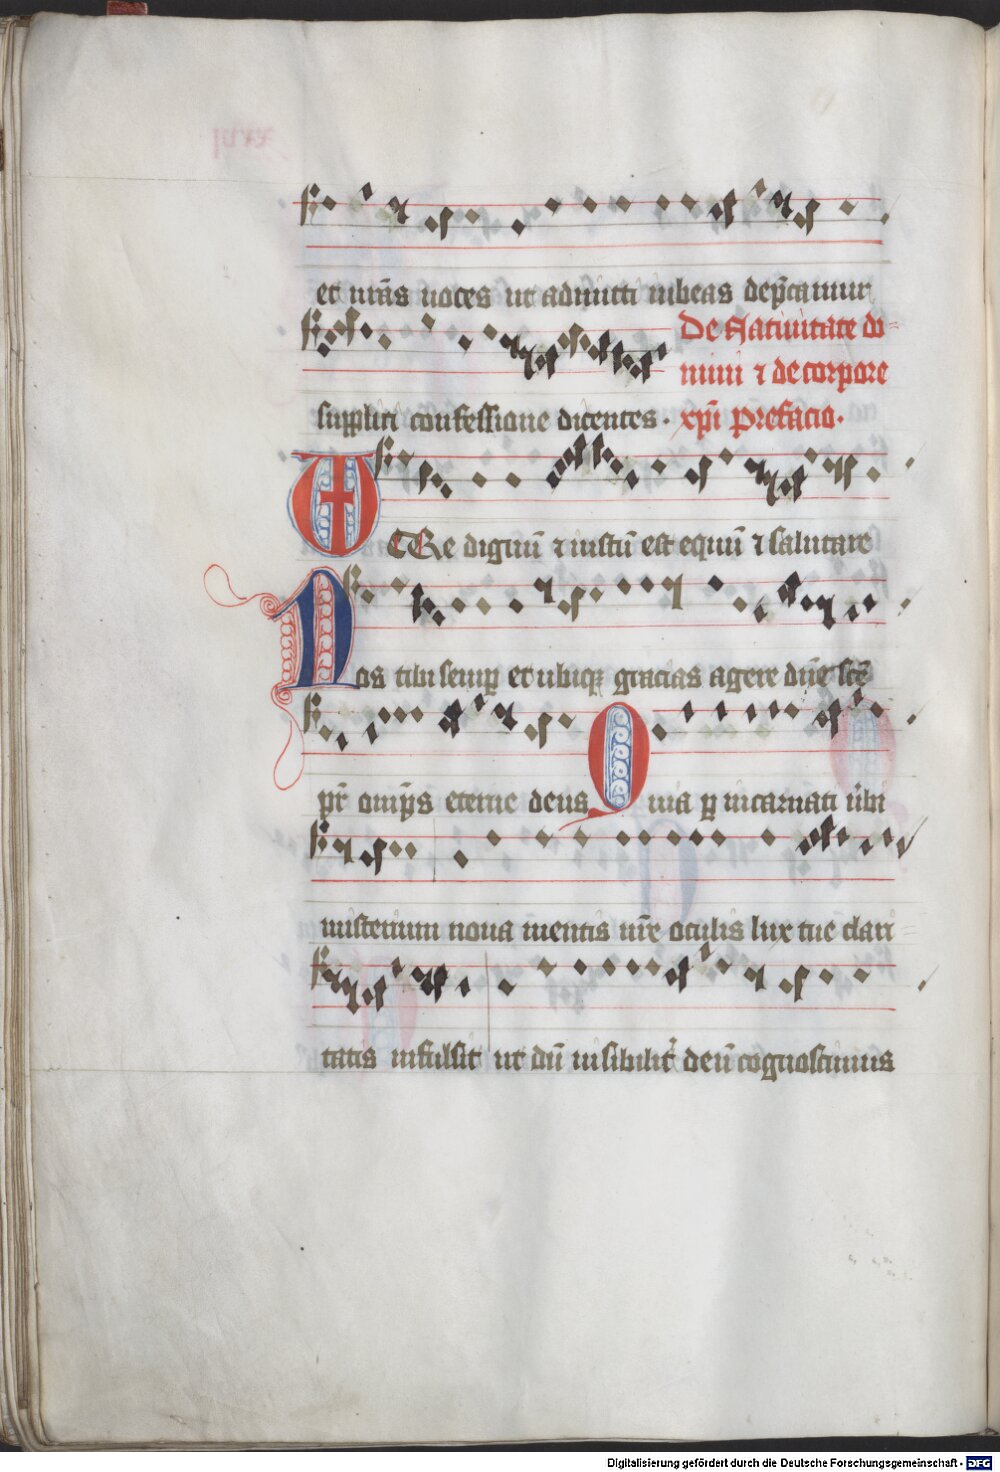 et nr̄as uoces ut admitti iubeas dep̄camur
De Natiuitate do=
mini ⁊ de corpore
suppliti confessione dicentes· xp̄i Prefacio·
VERe dignū ⁊ iustū est equū ⁊ salutare
Nos tibi semꝑ et ubiqꝫ gracias agere dn̄e sc̄e
pr̄ omp̄s eterne deus Quia ꝑ incarnati u̇bi
misterium noua mentis nr̄e oculis lux tue clari=
tatis infulsit ut dū uisibilit̓ deū cognoscimus
Digitalisierung gefördert durch die Deutsche Forschungsgemeinschaft - DFG